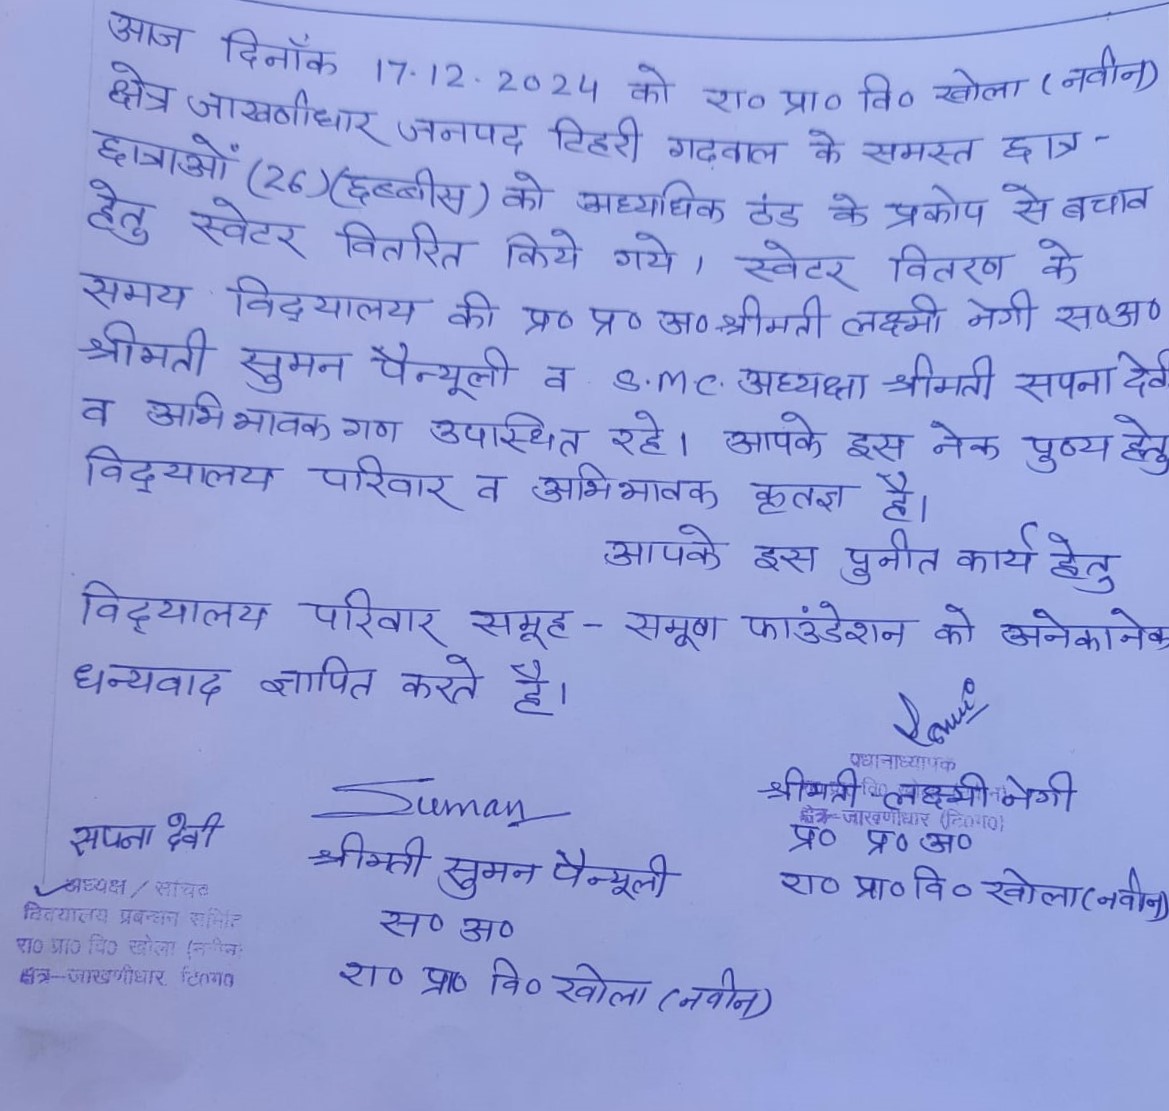 आज दिनाँक 17.12.2024 को रा० प्रा० वि० खोला (नवीन)
क्षेत्र जाखणीधार जनपद टिहरी गढ़वाल के समस्त छात्र-
छात्राओं (26) (छब्बीस) को अत्यधिक ठंड के प्रकोप से बचाव
हेतु स्वेटर वितरित किये गये। स्वेटर वितरण के
समय विद्यालय की प्र० प्र० अ० श्रीमती लक्ष्मी नेगी स०अ०
श्रीमती सुमन पैन्यूली व S.M.C. अध्यक्षा श्रीमती सपना देवी
व अभिभावक गण उपस्थित रहे। आपके इस नेक पुण्य हेतु
विद्यालय परिवार व अभिभावक कृतज्ञ है।
आपके इस पुनीत कार्य हेतु
विद्यालय परिवार समूह - समूण फाउंडेशन को अनेकानेक
धन्यवाद ज्ञापित करते है।
प्रधानाध्यापक
श्रीमती लक्ष्मी नेगी
क्षेत्र-जाखणीधार (टि०ग०)
प्र० प्र० अ०
रा० प्रा० वि० खोला (नवीन)
Suman
श्रीमती सुमन पैन्यूली
स० अ०
रा० प्रा० वि० खोला (नवीन)
सपना देवी
अध्यक्ष / सचिव
विद्यालय प्रबन्धन समिति
रा० प्रा० वि० खोला (नवीन)
क्षेत्र-जाखणीधार टि०ग०